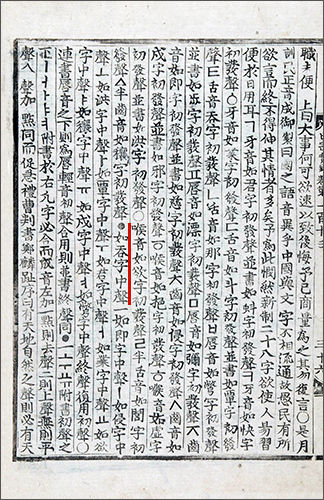 職主便 上曰大事何可欲速以致後悔予已商量爲之其勿復言○是月
訓民正音成御製曰國之語音異乎中國與文字不相流通故愚民有所
欲言而終不得伸其情者多矣予爲此憫然新制二十八字欲使人易習
便於日用耳ㄱ牙音如君字初發聲並書如虯字初發聲ㅋ牙音如快字
初發聲ㆁ牙音如業字初發聲ㄷ舌音如斗字初發聲並書如覃字初發
聲ㅌ舌音如呑字初發聲ㄴ舌音如那字初發聲ㅂ脣音如彆字初發聲
並書如步字初發聲ㅍ脣音如漂字初發聲ㅁ脣音如彌字初發聲ㅈ齒
音如卽字初發聲並書如慈字初發聲ㅊ齒音如侵字初發聲ㅅ齒音如戌字
初發聲並書如邪字初發聲ㆆ喉音如挹字初發聲ㅎ喉音如虛字
初發聲並書如洪字初發聲ㅇ喉音如欲字初發聲ㄹ半舌音如閭字初
發聲ㅿ半齒音如穰字初發聲ㆍ如呑字中聲ㅡ如卽字中聲ㅣ如侵字中
聲ㅗ如洪字中聲ㅏ如覃字中聲ㅜ如君字中聲ㅓ如業字中聲ㅛ如欲
字中聲ㅑ如穰字中聲ㅠ如戌字中聲ㅕ如彆字中聲終聲復用初聲ㅇ
連書脣音之下則爲脣輕音初聲合用則並書終聲同ㆍㅡㅗㅜㅛㅠ附書初聲之
下ㅣㅏㅓㅑㅕ附書於右凡字必合而成音左加一點則去聲二則上聲無則平
聲入聲加點同而促急禮曹判書鄭麟趾序曰有天地自然之聲則必有天